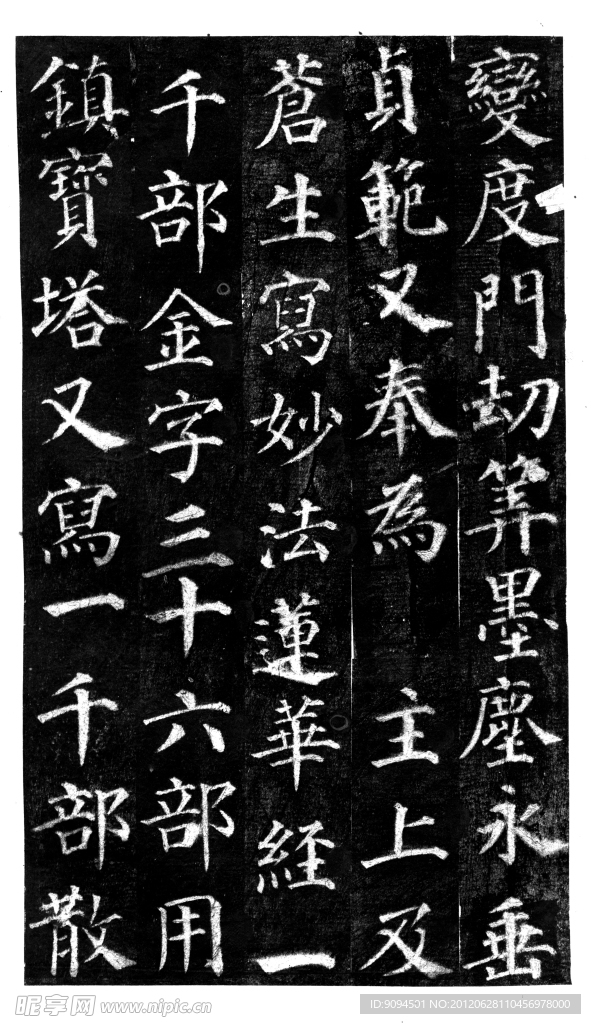 變度門劫筭墨塵永垂
貞範又奉為 主上及
蒼生寫妙法蓮華經一
千部金字三十六部用
鎮寶塔又寫一千部散
昵享网 www.nipic.cn
ID:9094501 NO:20120628110456978000